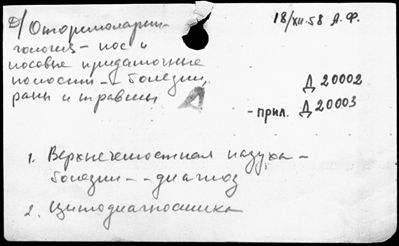 Д/ Оториноларин-
гология - нос и
носовые придаточные
полости - болезни,
раны и травмы
18/XII-58 А.Ф.
Д 20002
- прил. Д 20003
1. Верхнечелюстная пазуха -
болезни - - диагноз
2. Цитодиагностика